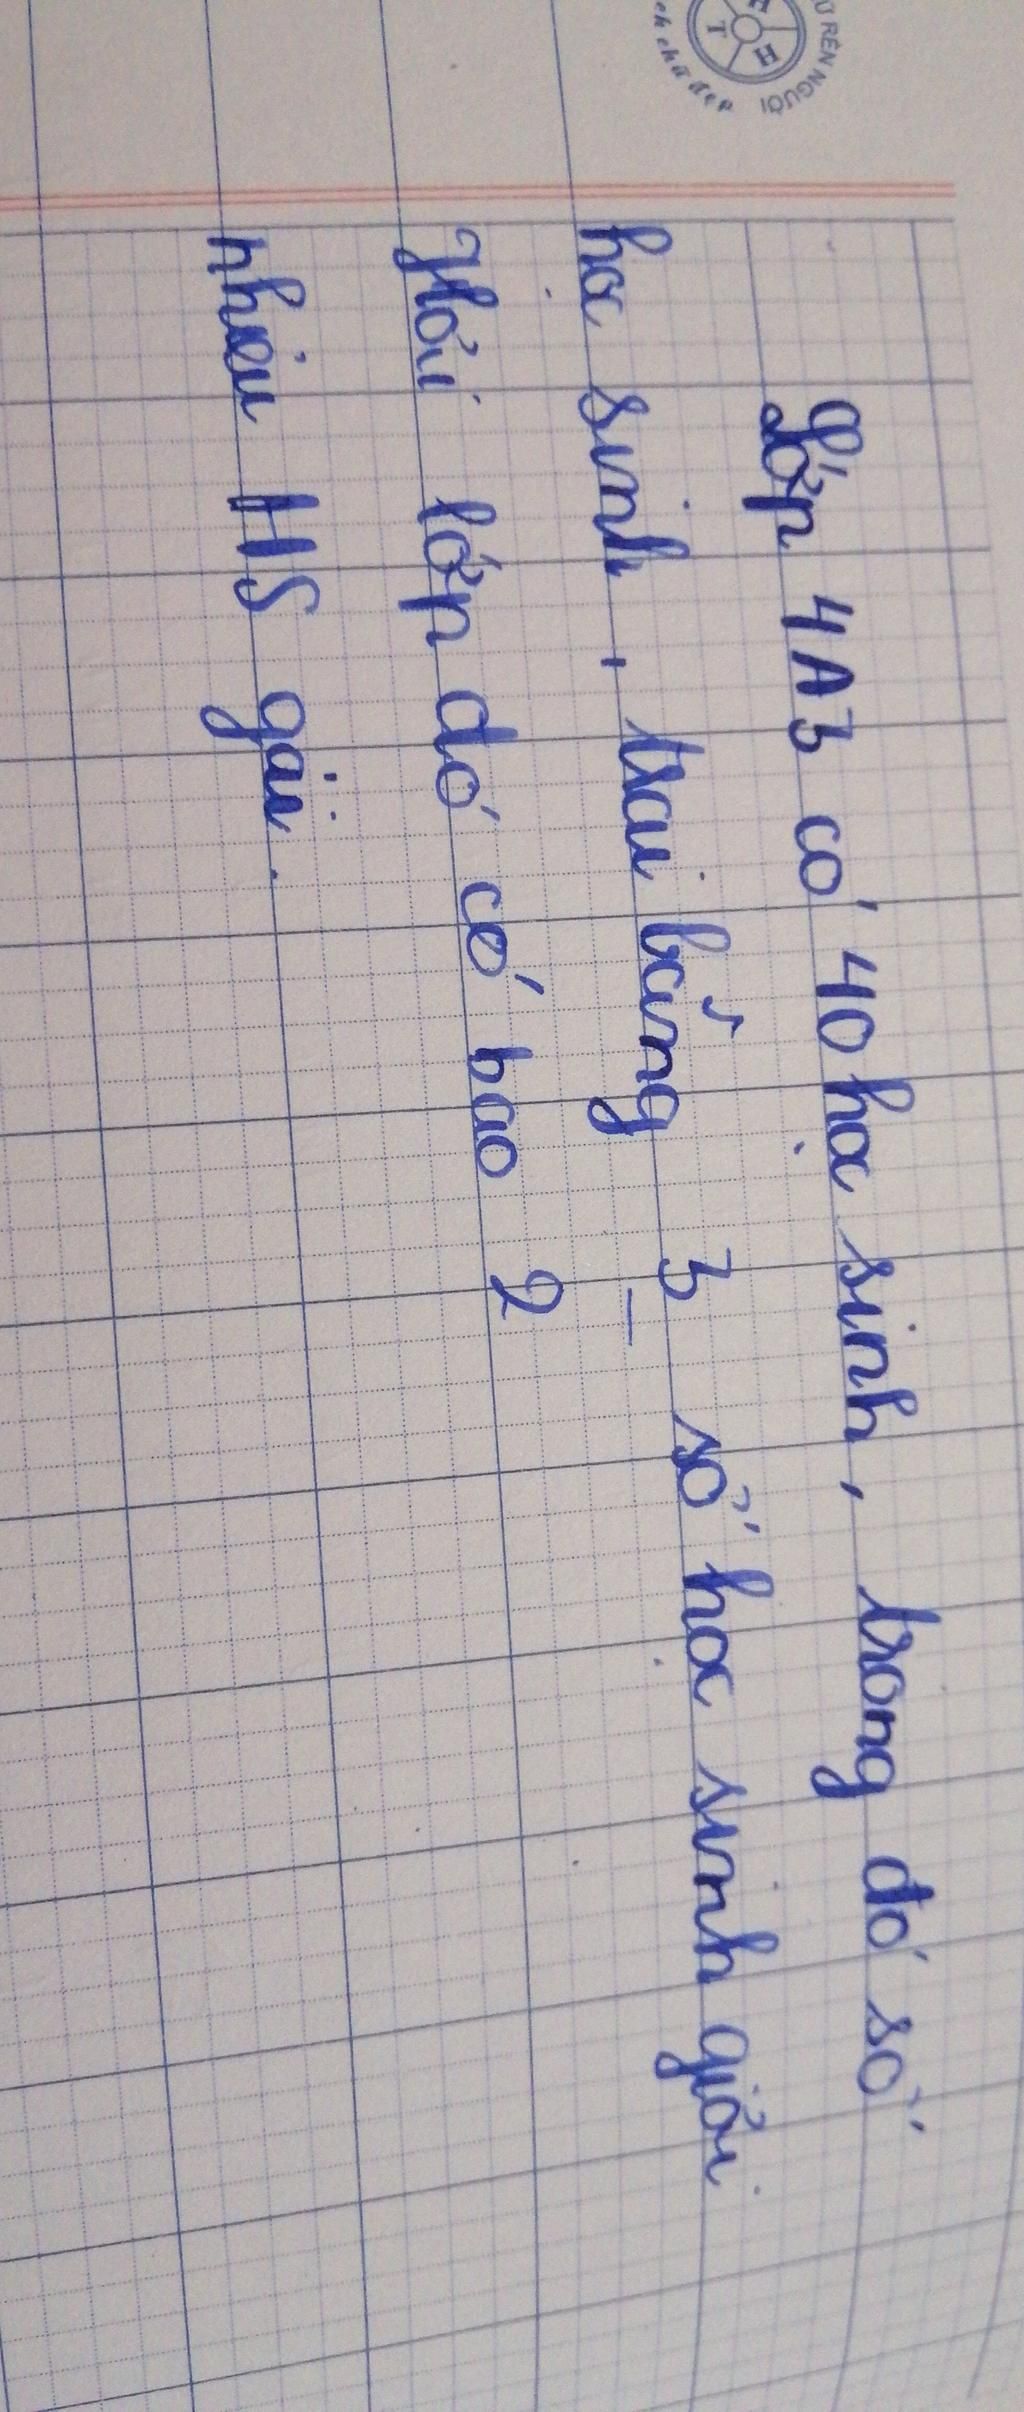 Ư RÈN NGƯỜI
T H
ch chữ đẹp
Lớp 4A3 có 40 học sinh, trong đó số
học sinh, trai bằng 3 số học sinh giỏi
2
Hỏi lớp đó có bao
nhiêu HS gái.